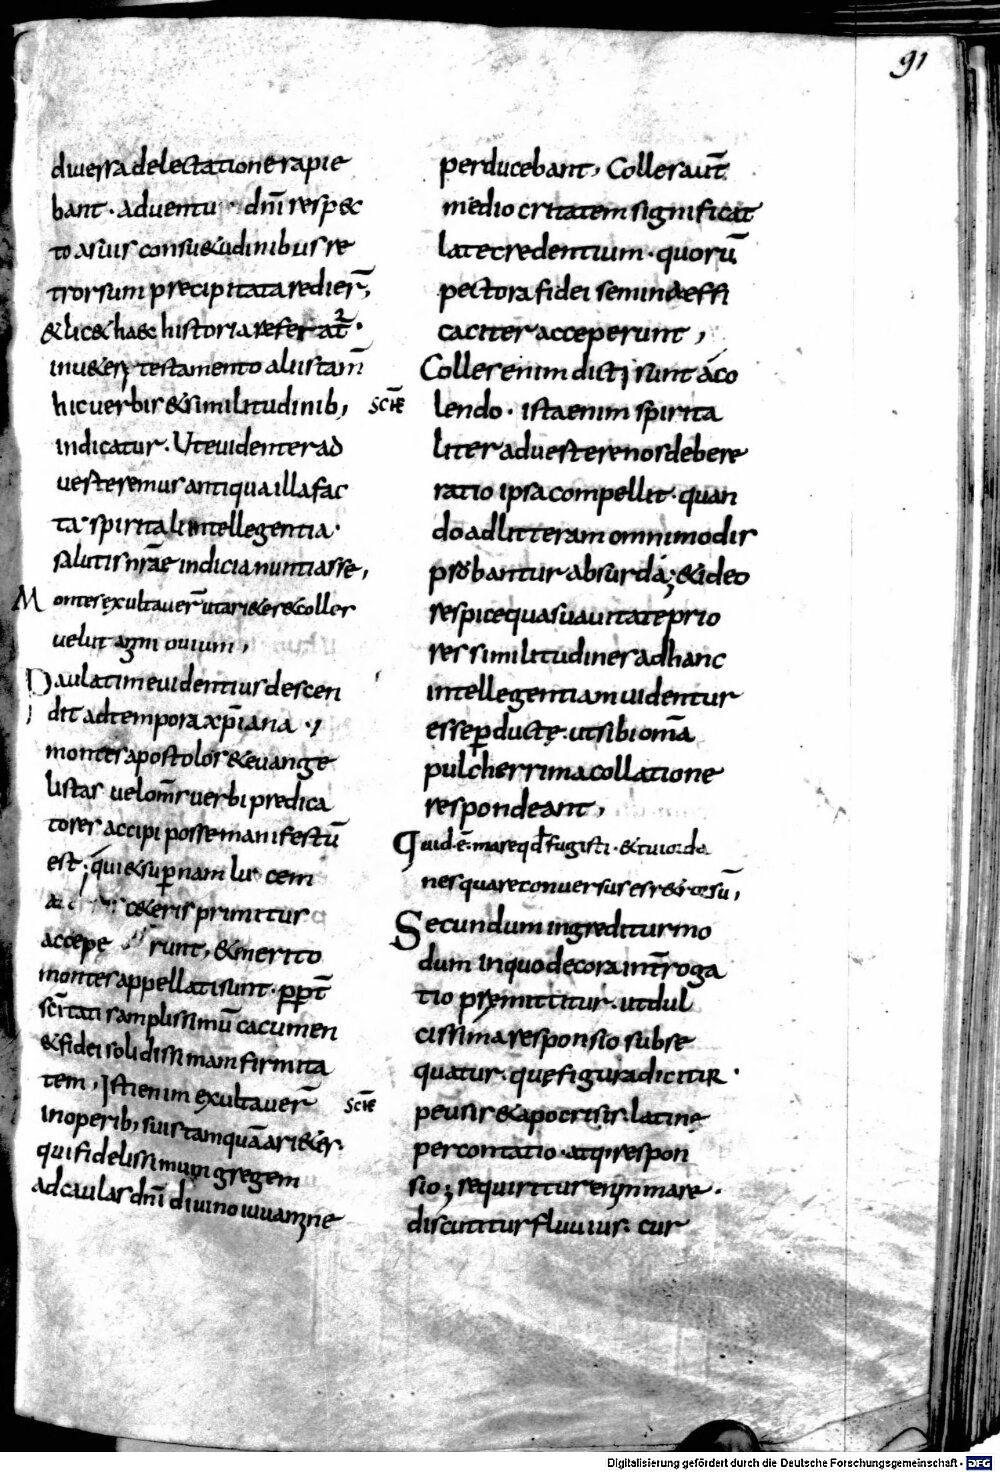 91
diuersa delectatione rapie
bant · aduentu · dn̄i resp&
to asuis consu&udinibus re
trorsum precipitata redier̄,
& lic& haec historia refer at̄ ·
inu&eri testamento aliis tam̄
hic uerbis & similitudinib,
indicatur. Ut euidenter ad
uesteremur antiqua illa fac
ta · spiritali intellegentia ·
salutis nr̄ae indicia nuntiasse,
Montes exultauer̄ ut ari&es & colles
uelut agni ouium,
Paulatim euidentius descen
dit ad tempora xp̄iana ·
montes apostolos & euange
listas uel om̄s uerbi predica
tores accipi posse manifestū
est · qui & sup̲nam lu cem
c&eris primitus
accepe runt, & merito
montes appellati sunt · pp̄t
sc̄itati s amplissimū cacumen
& fidei solidissimam firmita
tem, Isti enim exultauer̄
in operib, suis tamquā ari&es
qui fidelissimum gregem
ad caulas dn̄i diuino iuuamne
sc̄ie
sc̄ie
perducebant, Colles aut̄
mediocritatem significat
late credentium · quorū
pectora fidei semina effi
caciter acceperunt,
Colles enim dicti sunt aco
lendo · ista enim spirita
liter aduestere nos debere
ratio ipsa compellit · quan
do ad litteram omnimodis
probantur absurda; & ideo
respice qua suauitate prio
res similitudines ad hanc
intellegentiam uidentur
esse p̲ducte · ut sibi om̄a
pulcherrima collatione
respondeant,
Quid ē mare qd̄ fugisti · & tu iorda
nes quare conuersus es r&rorsū,
Secundum ingreditur mo
dum in quo decora int̄roga
tio premittitur · ut dul
cissima responsio subse
quatur · que figura dicitur ·
peusis & apocrisis · latine
percontatio · atq; respon
sio; requiritur enim mare ·
discutitur fluuius · cur
Digitalisierung gefördert durch die Deutsche Forschungsgemeinschaft - DFG